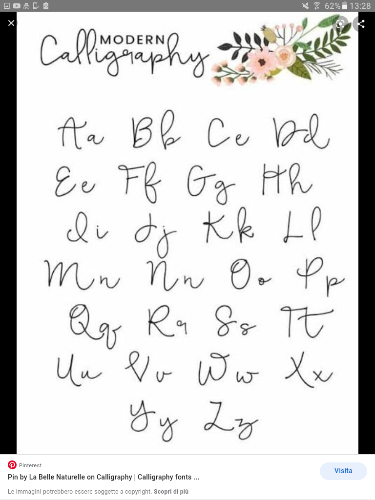 62% 13:28
MODERN
Calligraphy
Aa Bb Cc Dd
Ee Ff Gg Hh
Ii Jj Kk Ll
Mm Nn Oo Pp
Qq Rr Ss Tt
Uu Vv Ww Xx
Yy Zz
Pinterest
Pin by La Belle Naturelle on Calligraphy | Calligraphy fonts ...
Visita
Le immagini potrebbero essere soggette a copyright. Scopri di più